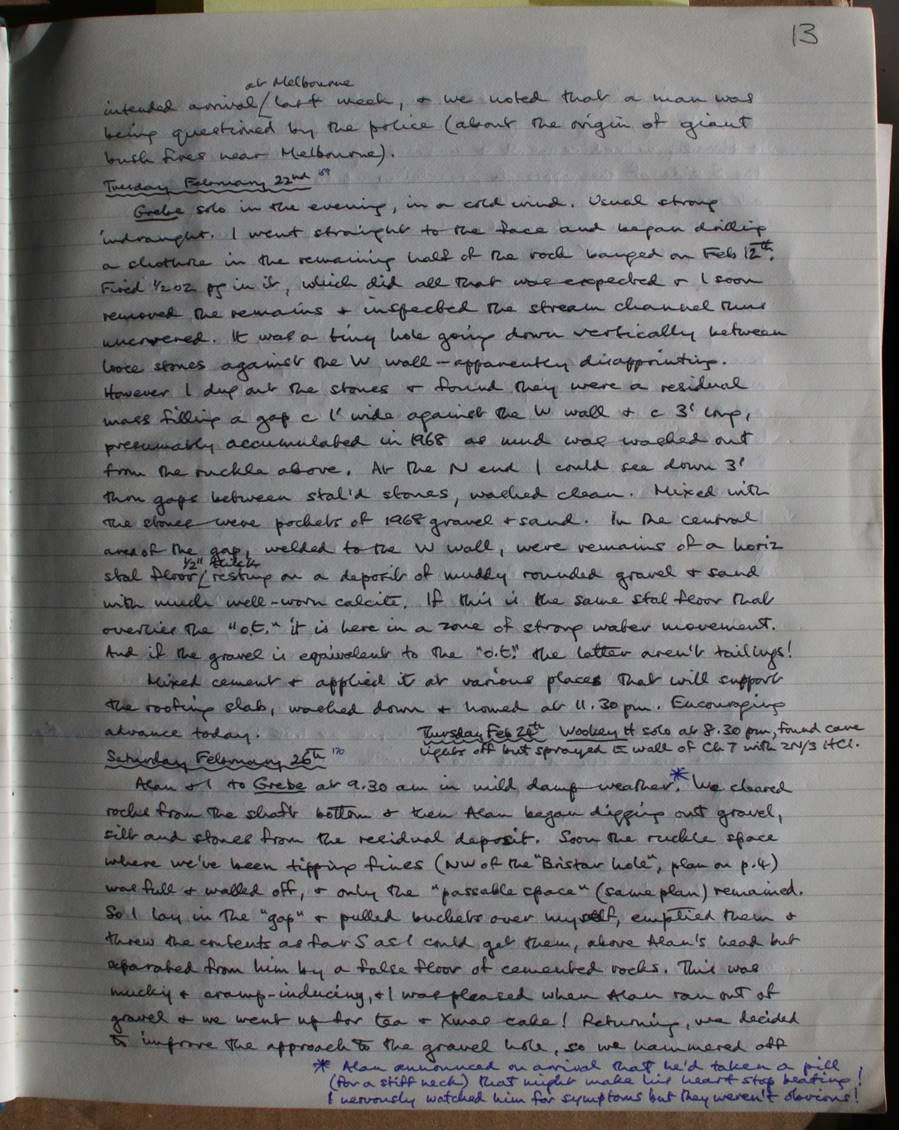 13
at Melbourne
intended arrival / last week, & we noted that a man was
being questioned by the police (about the origin of giant
bush fires near Melbourne).
Tuesday February 22nd
Grebe solo in the evening, in a cold wind. Usual strong
indraught. I went straight to the face and began drilling
a shothole in the remaining half of the rock banged on Feb 12th.
Fired ½oz pg in it, which did all that was expected & I soon
removed the remains & inspected the stream channel thus
uncovered. It was a tiny hole going down vertically between
loose stones against the W wall – apparently disappointing.
However I dug out the stones & found they were a residual
mass filling a gap c 1' wide against the W wall & c 3' long,
presumably accumulated in 1968 as mud was washed out
from the ruckle above. At the N end I could see down 3'
thru gaps between stal'd stones, washed clean. Mixed with
the stones were pockets of 1968 gravel & sand. In the central
area of the gap, welded to the W wall, were remains of a horiz
½" thick
stal floor / resting on a deposit of muddy rounded gravel & sand
with much well-worn calcite. If this is the same stal floor that
overlies the "o.t." it is here in a zone of strong water movement.
And if the gravel is equivalent to the "o.t." the latter aren't tailings!
Mixed cement & applied it at various places that will support
the roofing slab, washed down & homed at 11.30 pm. Encouraging
advance today.
Thursday Feb 24th Wookey H solo at 8.30 pm, found cave
lights off but sprayed E wall of Ch 7 with 2N/3 HCl.
Saturday February 26th 170
Alan & I to Grebe at 9.30 am in mild damp weather.* We cleared
rocks from the shaft bottom & then Alan began digging out gravel,
silt and stones from the residual deposit. Soon the ruckle space
where we've been tipping fines (NW of the "Bristar hole", plan on p.4)
was full & walled off, & only the "passable space" (same plan) remained.
So I lay in the "gap" & pulled buckets over myself, emptied them &
threw the contents as far S as I could get them, above Alan's head but
separated from him by a false floor of cemented rocks. This was
mucky & cramp-inducing, & I was pleased when Alan ran out of
gravel & we went up for tea & Xmas cake! Returning, we decided
to improve the approach to the gravel hole, so we hammered off
* Alan announced on arrival that he'd taken a pill
(for a stiff neck) that might make his heart stop beating!
I nervously watched him for symptoms but they weren't obvious!